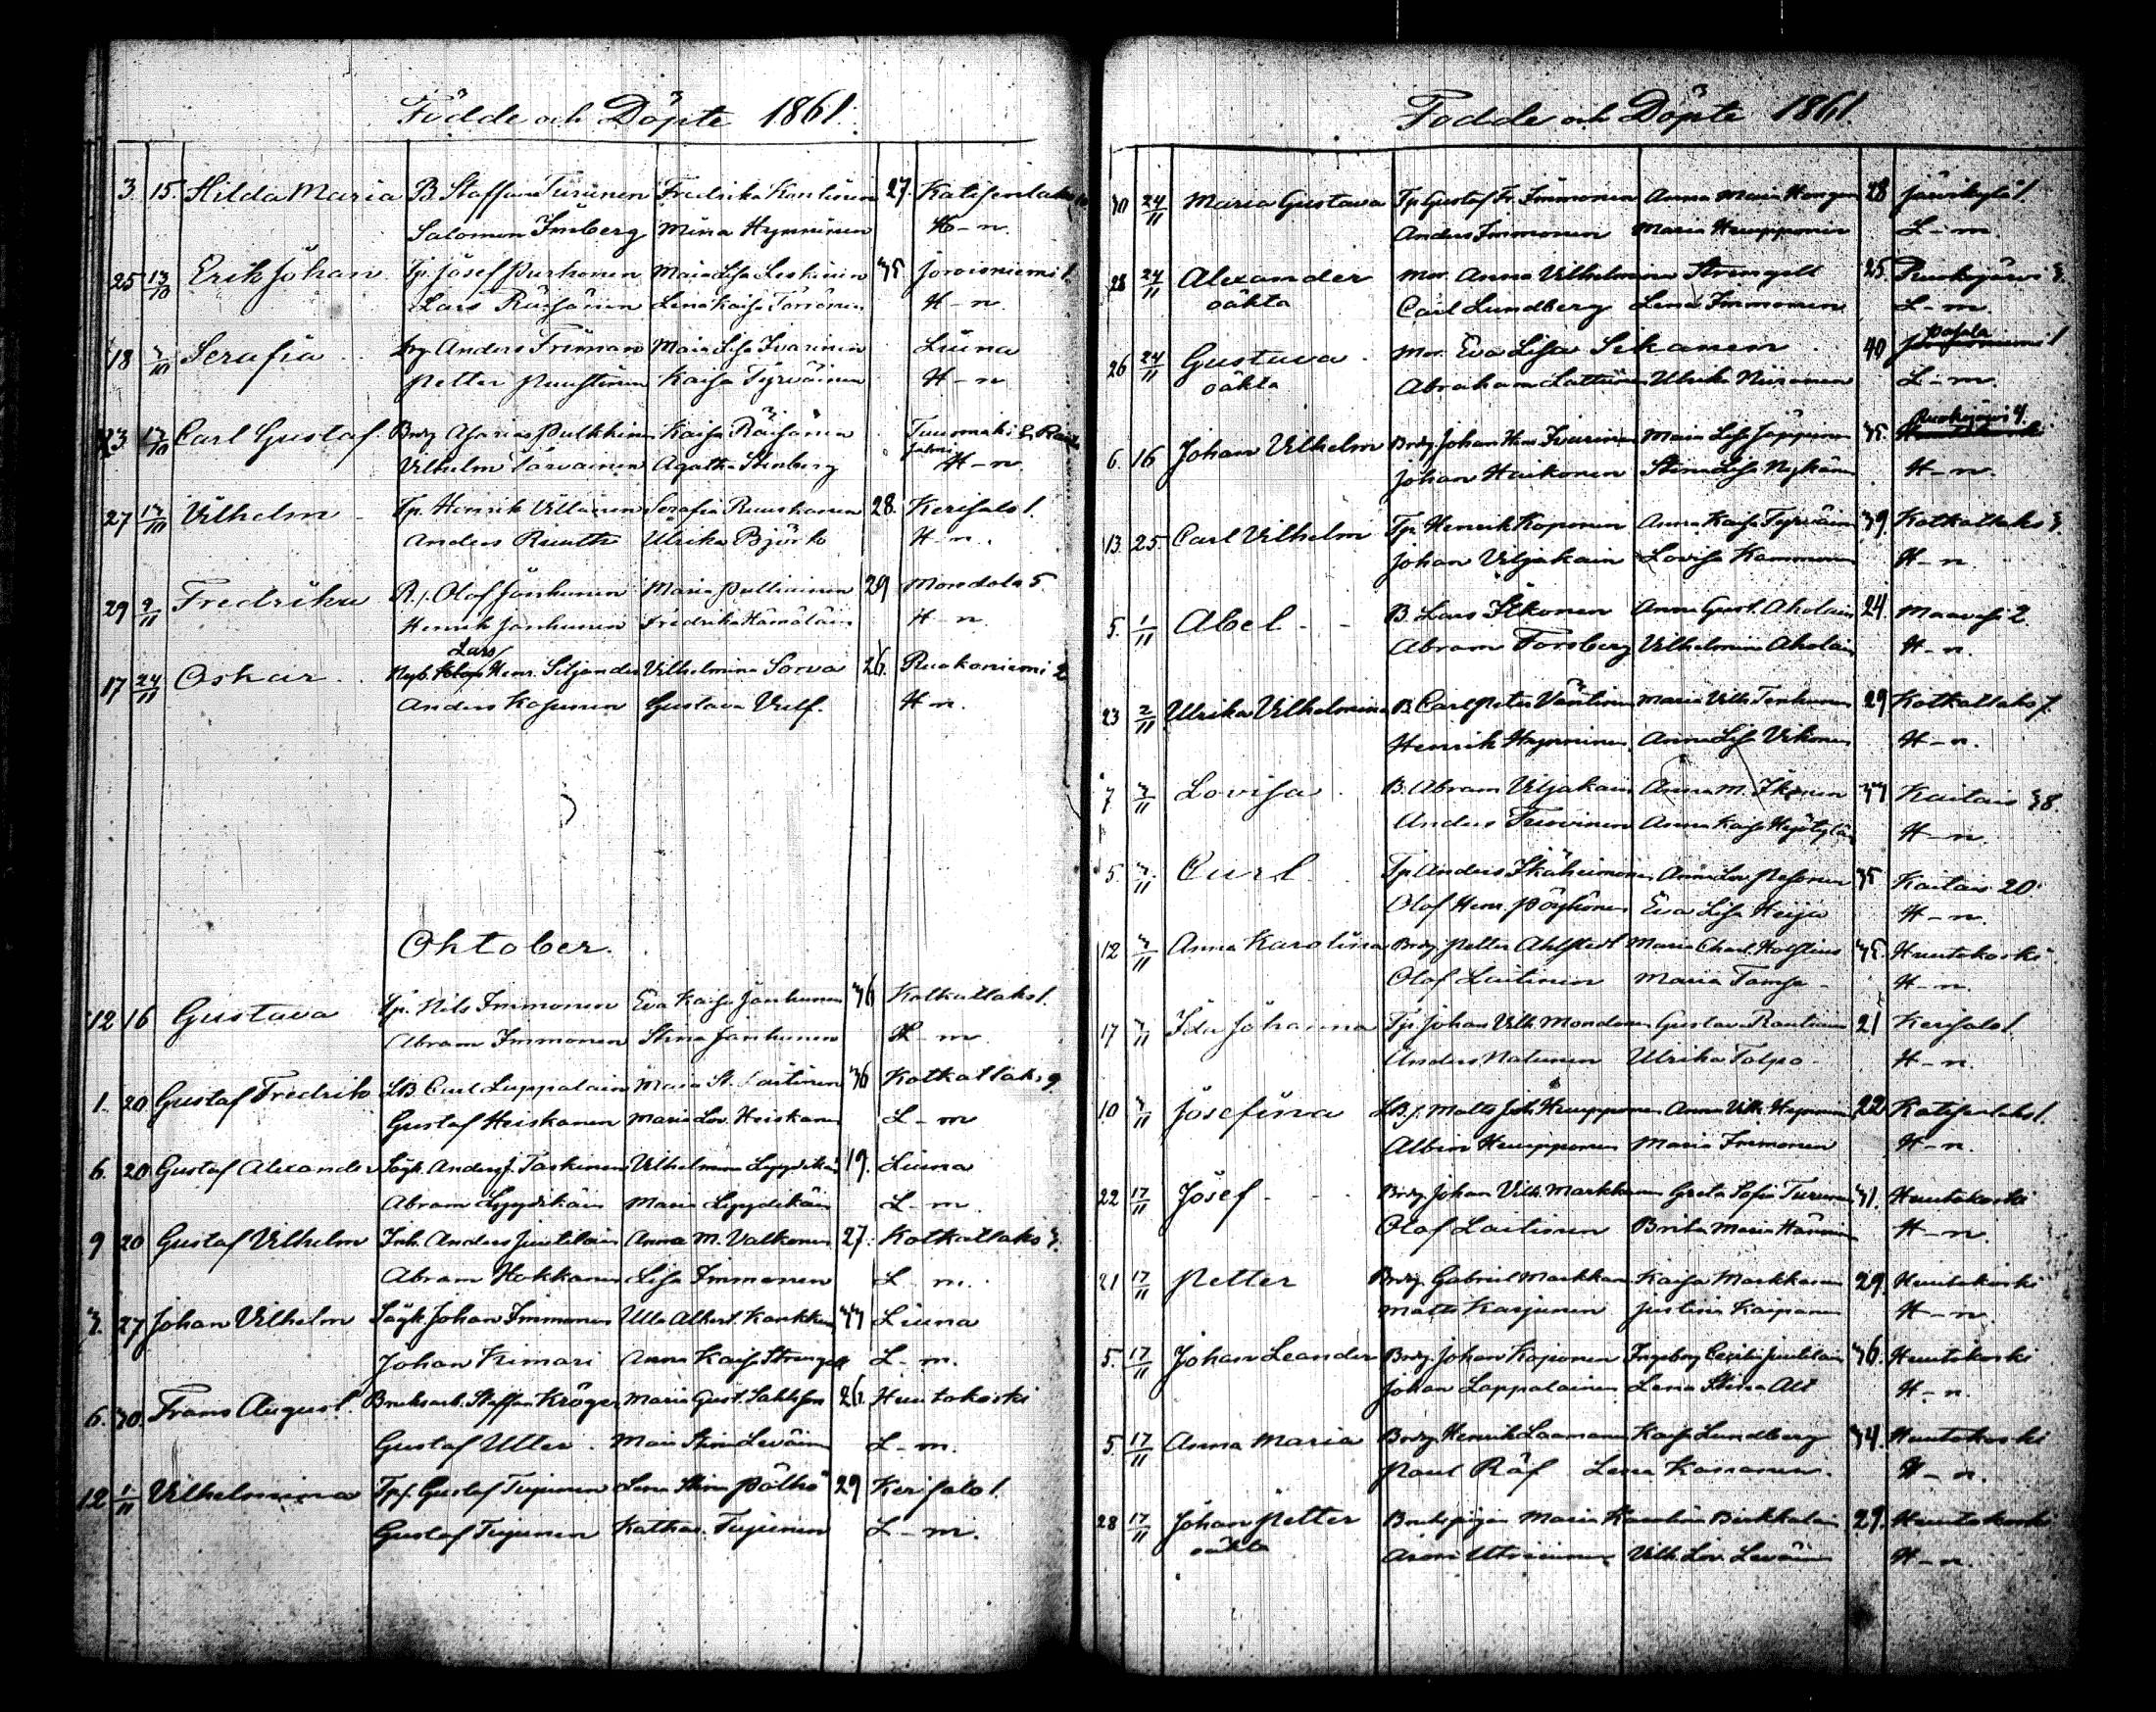 Födde och Döpte 1861.
3. 15. Hilda Maria B. Staffan Turunen Fredrika Kontinen 27. Katisenlaks
Salomon Imberg Mina Hynninen H-n.
25 13/10 Erik Johan Tp. Josef Purhonen Maria Lisa Leskinen 35 Joroisniemi 1.
Lars Räisänen Lena Kaisa Torrönen H-n.
18 3/10 Serafia Anders Friman Maia Lisa Ivarinen Liuna
Petter Puustinen Kaisa Tyrväinen H-n
23 13/10 Carl Gustaf Brukg Asarias Pulkkinen Kaisa Räisänen Tuuomäki
Vilhelm Tarvainen Agatha Stenberg H-n.
27 13/10 Vilhelm Tp. Henrik Villanen Serafia Ruuskanen 28. Kerisalo 1.
Anders Ruuth Ulrika Björk H-n.
29 9/11 Fredrika R.s. Olof Janhunen Maria Pulliainen 29 Mondola 5.
Henrik Janhunen Fredrika Hämäläin H-n.
Lars
17 24/11 Oskar Nyb. Henr. Siljander Vilhelmina Sorva 26. Ruokoniemi 2
Anders Kosunen Gustava Vulf. H-n.
Oktober.
12 16 Gustava Tp. Nils Immonen Eva Kaisa Janhunen 36 Kotkatlaks 1.
Abram Immonen Stina Janhunen L-m
1. 20 Gustaf Fredrik LB. Carl Lappalain Maia St. Partinen 36 Kotkatlaks 9.
Gustaf Heiskanen Maria Lov. Heiskan L-m
6. 20 Gustaf Alexander Sågk. Anders J. Taskinen Vilhelmina Lyydikäi 19. Liuna
Abram Lyydikäin Maria Lyydikäin L-m.
9 20 Gustaf Vilhelm Inh. Anders Juutilain Anna M. Valkonen 27. Kotkatlaks 3.
Abram Hokkanen Lisa Immonen L-m.
3. 27 Johan Vilhelm Sågk. Johan Immonen Ulla Albert. Karkkun 33 Liuna
Johan Kimari Anna Kaisa Strengell L-m.
6. 30. Frans August Bruksarb. Staffan Kröger Maria Gust. Sahlsten 26. Huutokoski
Gustaf Utter Maia Stina Leväin L-m.
12 1/11 Vilhelmina Tp.s. Gustaf Tujunen Lena Stina Pölkö 29 Kerisalo 1.
Gustaf Tujunen Kathar. Tujunen L-m.
Födde och Döpte 1861.
30 24/11 Maria Gustava Tp. Gustaf Fr. Immonen Anna Maria Hongon 28 Järvikylä 1.
Anders Immonen Maria Huupponen L-m.
28 24/11 Alexander Mor. Anna Vilhelmina Strengell 25. Ruokojärvi 3.
oäkta Carl Lundberg Lena Immonen L-m.
26 24/11 Gustava Mor. Eva Lisa Sikanen 40 Pasala 1
oäkta Abraham Lattunen Ulrika Niiranen L-m.
Ruokojärvi 4.
6. 16 Johan Vilhelm Brukg. Johan Hen. Ivarinen Maia Lisa Jäppinen 35.
Johan Haikonen Stina Lisa Nykäin H-n.
13. 25 Carl Vilhelm Tp. Henrik Koponen Anna Kaisa Tyrväin 39. Kotkatlaks 3.
Johan Viljakain Lovisa Kammonen H-n.
5. 1/11 Abel B. Lars Ikonen Anna Gust. Aholain 24 Maavesi 2
Abram Forsberg Vilhelmina Aholain H-n.
23 2/11 Ulrika Vilhelmina B. Carl Peter Väntinen Maria Vilh. Tenhunen 29 Kotkatlaks 7.
Henrik Hynninen Anna Lisa Vikonen H-n.
7 3/11 Lovisa B. Abram Viljakain Anna M. Ikonen 33 Kaitais 38.
Anders Turvinen Anna Kaisa Höytyläin H-n.
5. 3/11 Carl Tp. Anders Ikäheimonen Anna Lov. Pesonen 35 Kaitais 20.
Olof Henr. Pöyhönen Eva Lisa Heiju H-n.
12 3/11 Anna Karolina Brukg. Petter Ahlstedt Maria Charl. Holstius 35. Huutokoski.
Olof Laitinen Maria Tamsa H-n.
17 3/11 Ida Johanna Tp. Johan Vilh. Mondonen Gustava Rautiain 21 Kerisalo 1.
Anders Natunen Ulrika Talpo H-n.
10 3/11 Josefina LB.s. Matts Joh. Huupponen Anna Vilh. Hepon 22 Katisenlaks 1.
Albin Huupponen Maria Immonen H-n.
22 17/11 Josef Brukg. Johan Vilh. Markkanen Greta Sofia Turunen 31. Huutokoski
Olof Laitinen Brita Maria Hännin H-n.
21 17/11 Petter Brukg. Gabriel Markkan Kaisa Markkanen 29. Huutokoski
Matts Karjunen Justina Kaipanen H-n.
5. 17/11 Johan Leander Brukg. Johan Koponen Ingeborg Cecilia Juutilain 36. Huutokoski
Johan Lappalainen Lena Stina Alt H-n.
5 17/11 Anna Maria Brukg. Henrik Laamanen Kaisa Lundberg 34. Huutokoski
Paul Räf Lena Kananen. H-n.
28 17/11 Johan Petter Brukspigan Maria Karolina Birkkalain 29. Huutokoski
oäkta Aron Utriainen Vilh. Lov. Leväin H-n.